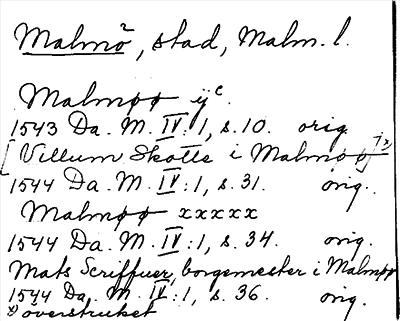 Malmö, stad, Malm. l.
Malmøø ijc.
1543 Da. M. IV:1, s. 10. orig.
[Villum Skotte i Malmøø] x)
1544 Da. M. IV:1, s. 31. orig.
Malmøø xxxxx
1544 Da. M. IV:1, s. 34. orig.
Mats Scriffuer, borgemester i Malmøø
1544 Da. M. IV:1, s. 36. orig.
x) överstruket